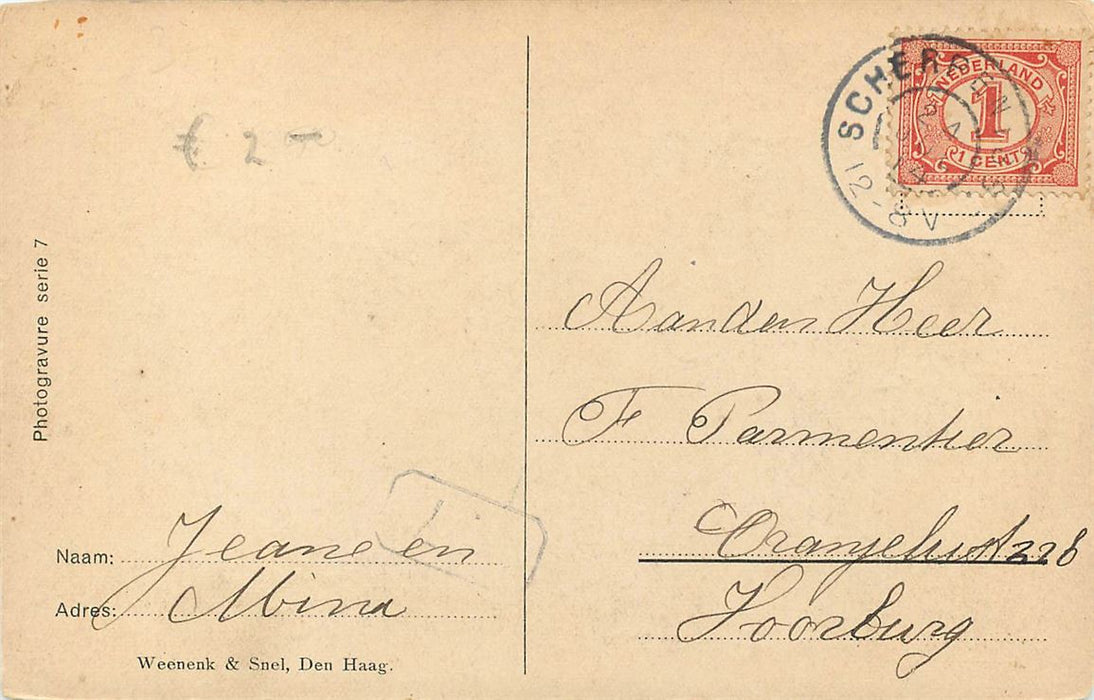 € 2 -
SCHERPENZEEL
12-8 V
NEDERLAND
1
1 CENT
Photogravure serie 7
Aan den Heer
F Parmentier
Oranjelust 228
Voorburg
Naam: Jeane en
Adres: Mina
Weenenk & Snel, Den Haag.